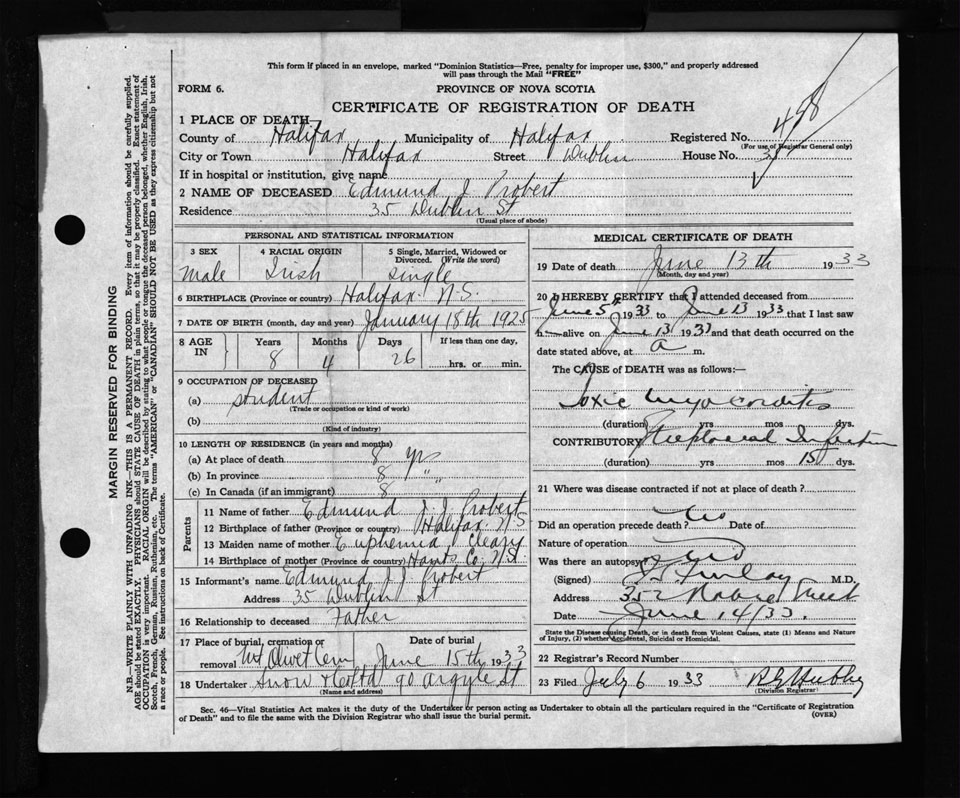 This form if placed in an envelope, marked "Dominion Statistics—Free, penalty for improper use, $300," and properly addressed
will pass through the Mail "FREE"
FORM 6. PROVINCE OF NOVA SCOTIA
CERTIFICATE OF REGISTRATION OF DEATH
1 PLACE OF DEATH
County of Halifax Municipality of Halifax Registered No. 498
(For use of Registrar General only)
City or Town Halifax Street Dublin House No. 35
If in hospital or institution, give name
2 NAME OF DECEASED Edmund J Probert
Residence 35 Dublin St
(Usual place of abode)
PERSONAL AND STATISTICAL INFORMATION
3 SEX 4 RACIAL ORIGIN 5 Single, Married, Widowed or Divorced. (Write the word)
Male Irish Single
6 BIRTHPLACE (Province or country) Halifax N.S.
7 DATE OF BIRTH (month, day, and year) January 18th 1925
8 AGE IN Years Months Days If less than one day,
8 4 26 hrs. or min.
9 OCCUPATION OF DECEASED
(a) student
(Trade or occupation or kind of work)
(b)
(Kind of industry)
10 LENGTH OF RESIDENCE (in years and months)
(a) At place of death 8 yrs
(b) In province 8 "
(c) In Canada (if an immigrant) 8 "
Parents
11 Name of father Edmund J. J. Probert
12 Birthplace of father (Province or country) Halifax N.S
13 Maiden name of mother Euphemia Cleary
14 Birthplace of mother (Province or country) Hants Co. N.S.
15 Informant's name Edmund J J Probert
Address 35 Dublin St
16 Relationship to deceased Father
17 Place of burial, cremation or removal Mt Olivet Cem Date of burial June 15th 1933
18 Undertaker Snow & Co Ltd 90 Argyle St
(Name and address)
MEDICAL CERTIFICATE OF DEATH
19 Date of death June 13th 1933
(Month, day and year)
20 I HEREBY CERTIFY that I attended deceased from
June 5th 1933 to June 13 1933 that I last saw
h alive on June 13 1933 and that death occurred on the
date stated above, at a m.
The CAUSE of DEATH was as follows:
Toxic Myocarditis
(duration) yrs mos dys.
CONTRIBUTORY Streptococcal Infection
(duration) yrs mos 15 dys.
21 Where was disease contracted if not at place of death?
Did an operation precede death? No Date of
Nature of operation
Was there an autopsy? No
(Signed) Finlay M.D.
Address 352 Street
Date June 14/33.
State the Disease causing Death, or in death from Violent Causes, state (1) Means and Nature
of Injury, (2) whether Accidental, Suicidal or Homicidal.
22 Registrar's Record Number
23 Filed July 6 1933
(Division Registrar)
Sec. 46—Vital Statistics Act makes it the duty of the Undertaker or person acting as Undertaker to obtain all the particulars required in the "Certificate of Registration
of Death" and to file the same with the Division Registrar who shall issue the burial permit. (OVER)
MARGIN RESERVED FOR BINDING
N.B.—WRITE PLAINLY WITH UNFADING INK—THIS IS A PERMANENT RECORD. Every item of information should be carefully supplied.
AGE should be stated EXACTLY. PHYSICIANS should STATE CAUSE OF DEATH in plain terms, so that it may be properly classified. Exact statement of
OCCUPATION is very important. RACIAL ORIGIN will be described by stating to what people or tongue the deceased person belonged, whether English, Irish,
Scotch, French, German, Russian, Ruthenian, etc. The terms "AMERICAN" or "CANADIAN" SHOULD NOT BE USED as they express citizenship but not
a race or people. See instructions on back of Certificate.